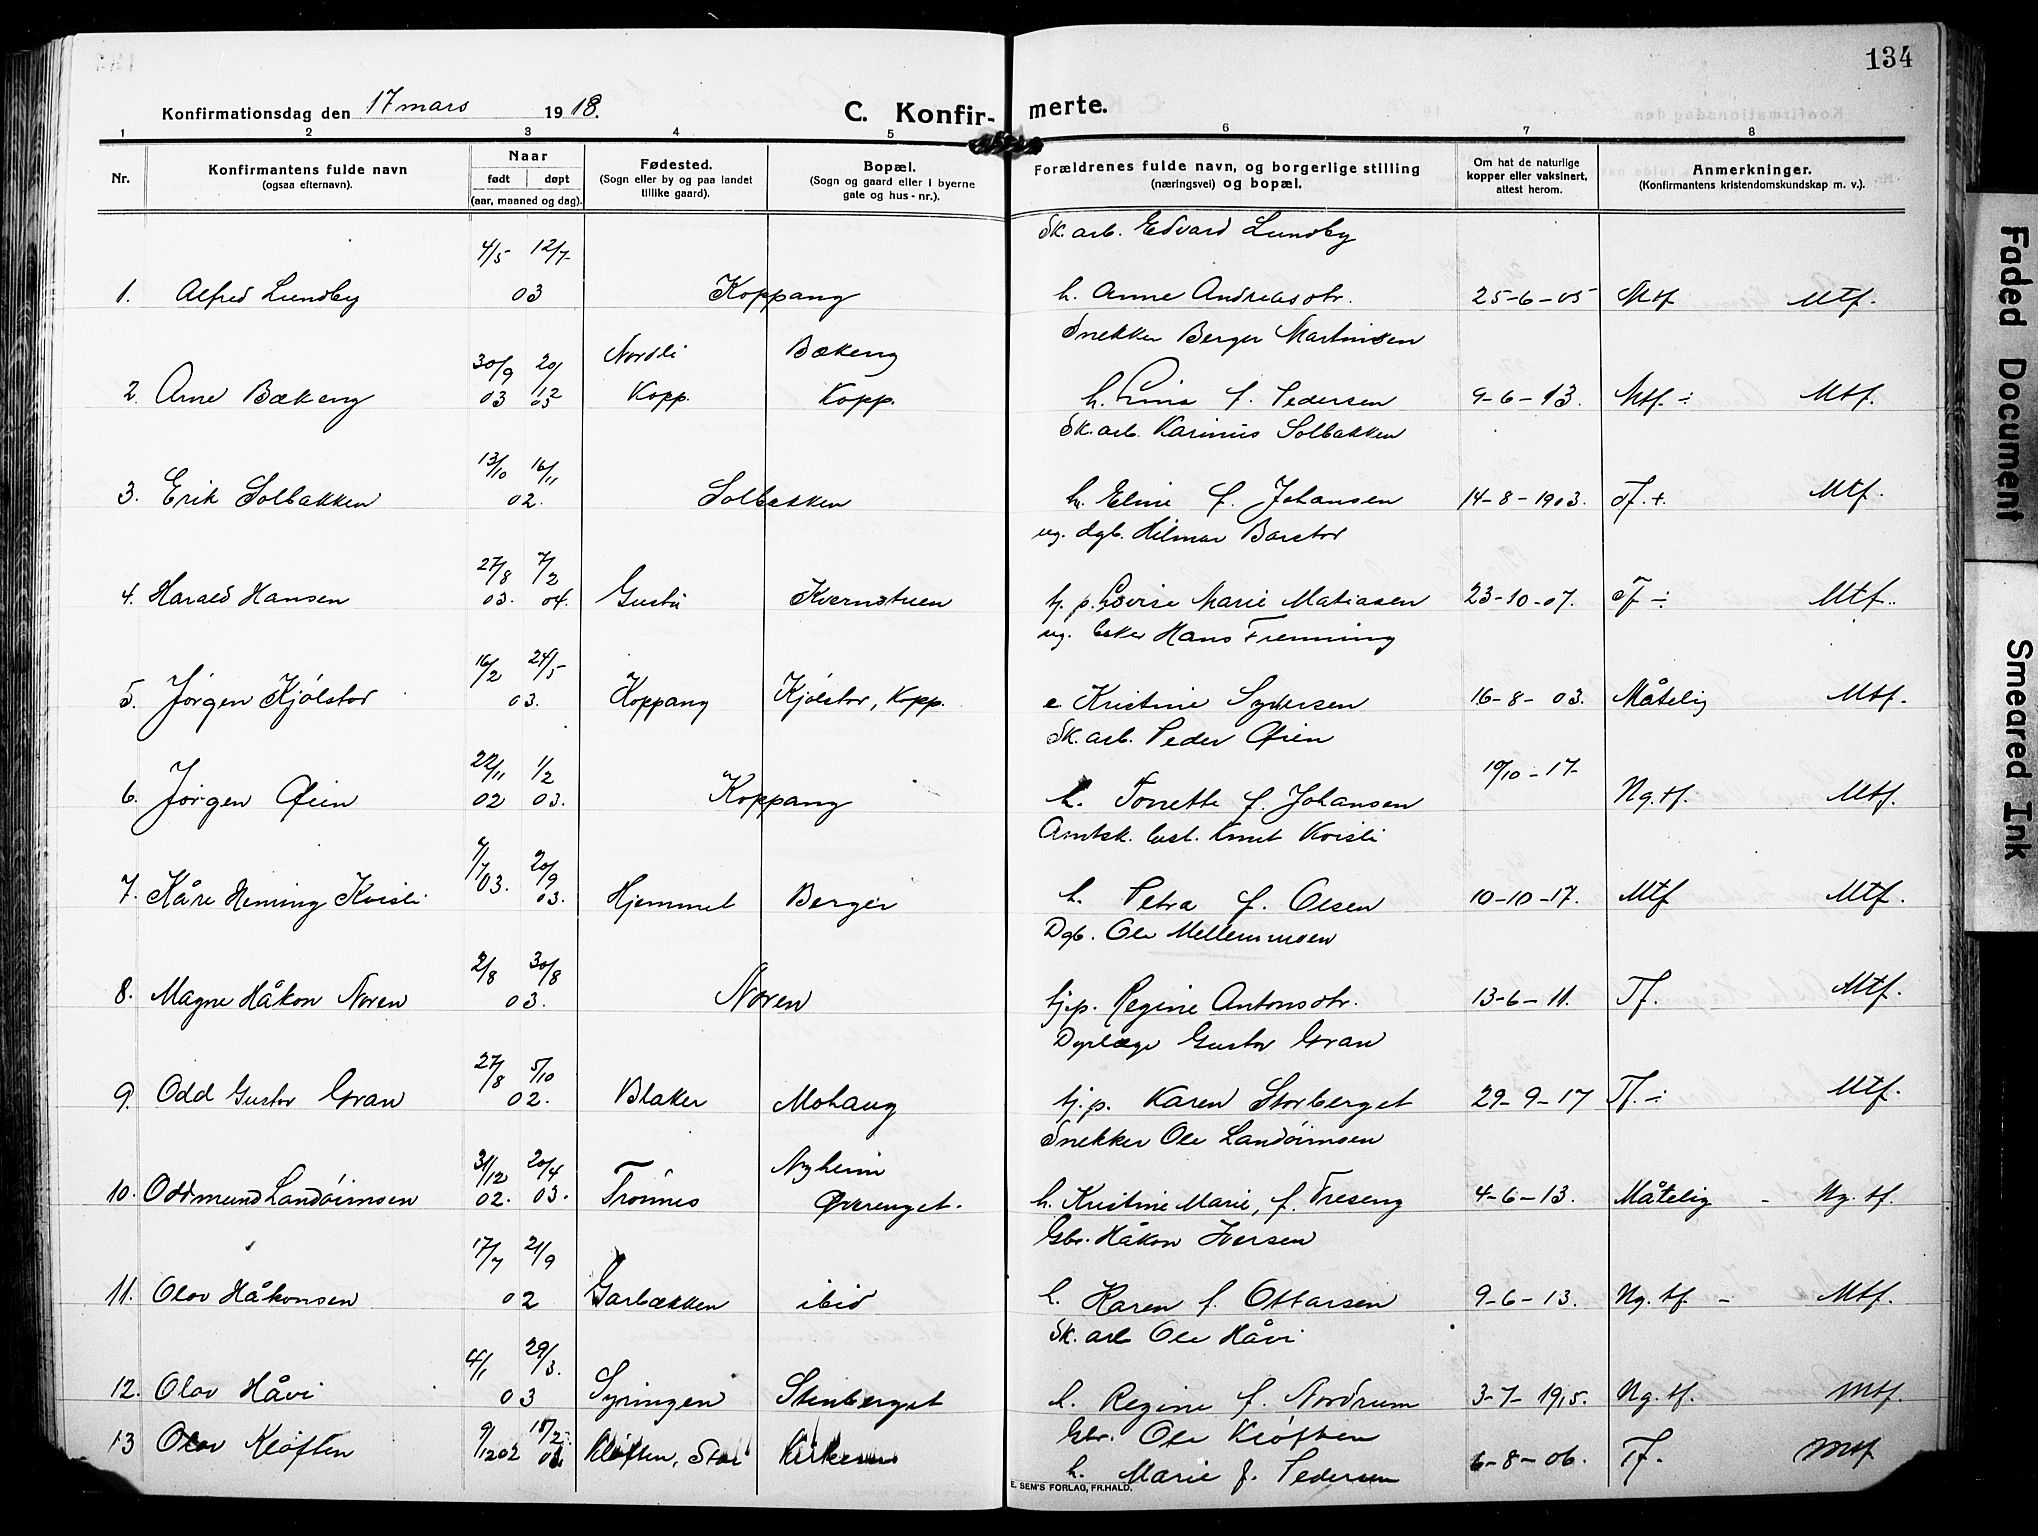 134
Konfirmationsdag den 17 mars 1918.
C. Konfir-merte.
1 2 3 4 5 6 7 8
Nr.
Konfirmantens fulde navn
(ogsaa efternavn).
Naar
født døpt
(aar, maaned og dag).
Fødested.
(Sogn eller by og paa landet
tillike gaard).
Bopæl.
(Sogn og gaard eller i byerne
gate og hus-nr.).
Forældrenes fulde navn, og borgerlige stilling
(næringsvei) og bopæl.
Om hat de naturlige
kopper eller vaksinert,
attest herom.
Anmerkninger.
(Konfirmantens kristendomskundskap m. v.).
4/5 12/7 Sk. arb. Edvard Lundby
1. Alfred Lundby 03 Koppang h. Anne Andreasdtr. 25-6-05 Mtf Mtf.
30/9 20/12 Nordli Bækeng Snekker Berger Martinsen
2. Arne Bækeng 03 03 Kopp. Kopp. h. Lina f. Pedersen 9-6-13. Mtf. ÷ Mtf.
13/10 16/11 Sk. arb. Karinius Solbakken
3. Erik Solbakken 02. Solbakken h. Eline f. Johansen 14-8-1903. Tf. + Mtf.
27/8 7/2 ug. dgb. Hilmar Barstor
4. Harald Hansen 03. 04. Gustu Kvernstuen tj. p. Lovise Marie Matiasen 23-10-07. Tf ÷ Mtf.
16/2 24/5 ug. Hans Frenning
5. Jørgen Kjølstor 03. Koppang Kjølstor, Kopp. e Kristine Syversen 16-8-03. Måtelig Mtf.
22/11 1/2 Sk. arb. Peder Øien 19/10-17
6. Jørgen Øien 02 03. Koppang h. Tonette f. Johansen Ng. tf. Mtf.
7/7 20/9 Amtsk. best. Knut Kvisli
7. Kåre Heming Kvisli 03. 03. Hjemmet Berger h. Petra f. Olsen 10-10-17. Mtf Mtf.
2/8 30/8 Dgb. Ole Mellemmoen
8. Magne Håkon Noren 03. Noren tj.p. Regine Antonsdtr. 13-6-11. Tf. Mtf.
27/8 5/10 Dyrlæge Gustov Gran
9. Odd Gustov Gran 02. Blaker Mohaug tj. p. Karen Storberget 29-9-17 Tf. ÷ Mtf.
31/12 20/4 Nyheim Snekker Ole Landøimsen
10. Oddmund Landøimsen 02. 03. Trønnes Øverenget. h. Kristine Marie, f. Treseng 4-6-13. Måtelig - Ng. tf.
17/7 21/9 Gbr. Håkon Iversen
11. Olov Håkonsen 02 Garbækken ibid h. Karen f. Ottarsen 9-6-13. Ng. tf. - Mtf.
4/1 29/3. Sk. arb Ole Håvi
12. Olov Håvi 03 Syringen Stenberget h. Regine f. Nordrum 3-7-1915. Ng. tf. Mtf.
Gbr. Ole Kløften
13 Olov Kløften 9/12 02 Kløften, Stai h. Marie f. Pedersen 6-8-06. Tf. Mtf
E. SEM'S FORLAG, FR.HALD.
Faded Document
Smeared Ink